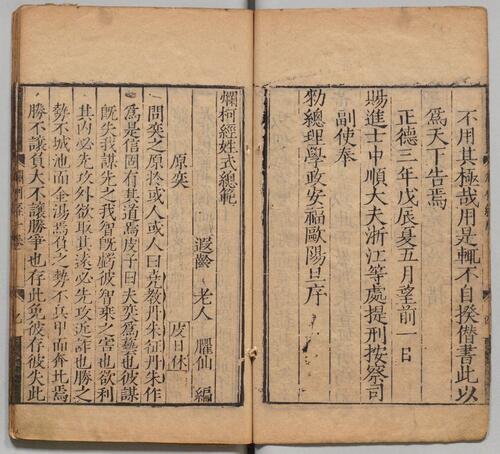 不用其極哉用是輒不自揆僭書此以
為天下告焉
正德三年戊辰夏五月望前一日
賜進士中順大夫浙江等處提刑按察司
副使奉
勑總理學政安福歐陽旦序
爛柯經姓式總範
遐齡老人臞仙編
原奕
皮日休
問奕之原於或人或人曰堯教丹朱征丹朱作
為是信固有其道焉皮子曰夫奕為藝也彼謀
既失我謀先之我智既虧彼智乘之害也欲利
其内必先攻外欲取其遠必先攻近詐也勝之
勢不城池而金湯焉負之勢不兵甲而奔北焉
勝不讓負大不讓勝爭也存此免彼存彼失此